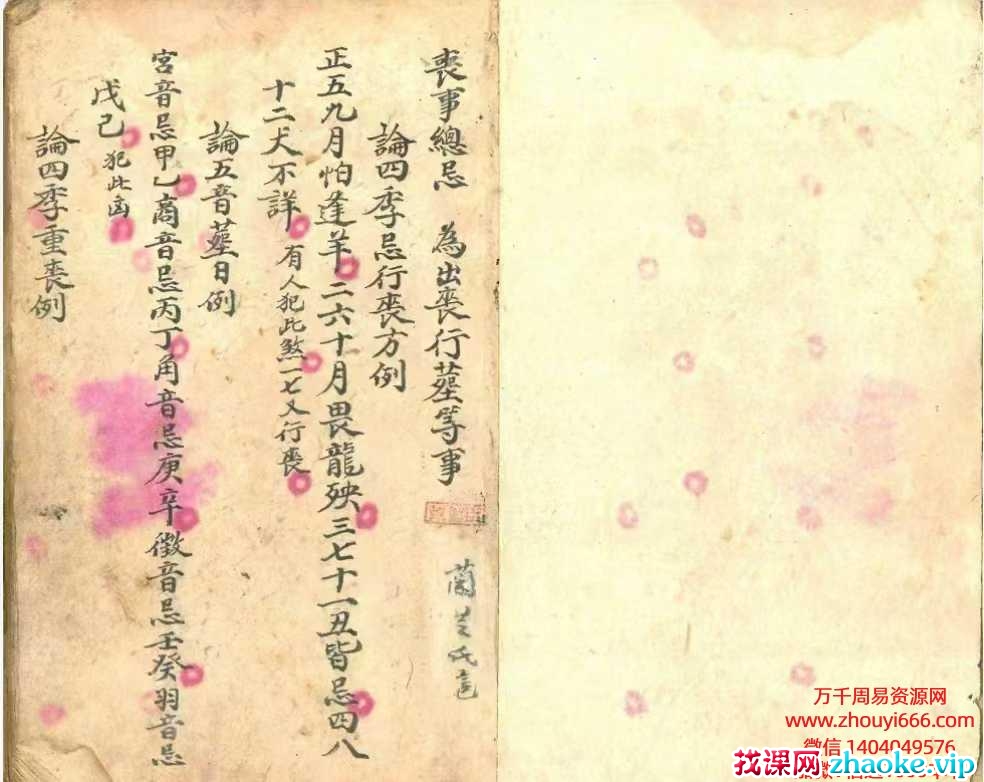 喪事總忌　為出喪行塟等事
論四季忌行喪方例
正五九月怕逢羊二六十月畏龍殃三七十一丑皆忌四八
十二犬不詳　有人犯此煞一七又行喪
論五音塟日例
宮音忌甲乙商音忌丙丁角音忌庚辛徵音忌壬癸羽音忌
戊己　犯此凶
論四季重喪例
万千周易资源网
www.zhouyi666.com
微信 1404049576
找课网 zhaoke.vip